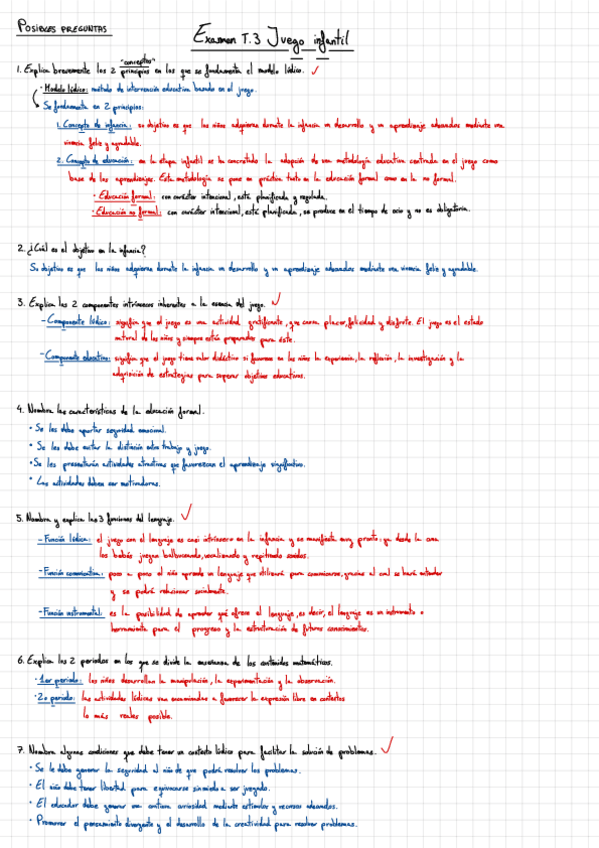 POSIBLES PREGUNTAS
Examen T.3 Juego infantil
"conceptos"
1. Explica brevemente los 2 principios en los que se fundamenta el modelo lúdico. ✓
· Modelo lúdico: método de intervención educativa basado en el juego.
Se fundamenta en 2 principios:
1. Concepto de infancia: su objetivo es que los niños adquieran durante la infancia un desarrollo y un aprendizaje adecuados mediante una
vivencia feliz y agradable.
2. Concepto de educación: en la etapa infantil se ha concretado la adopción de una metodología educativa centrada en el juego como
base de los aprendizajes. Esta metodología se pone en práctica tanto en la educación formal como en la no formal.
· Educación formal: con carácter intencional, está planificada y regulada.
· Educación no formal: con carácter intencional, está planificada, se produce en el tiempo de ocio y no es obligatoria.
2. ¿Cuál es el objetivo en la infancia?
Su objetivo es que los niños adquieran durante la infancia un desarrollo y un aprendizaje adecuados mediante una vivencia feliz y agradable.
3. Explica los 2 componentes intrínsecos inherentes a la esencia del juego. ✓
- Componente lúdico: significa que el juego es una actividad gratificante, que crea placer, felicidad y disfrute. El juego es el estado
natural de los niños y siempre están preparados para éste.
- Componente educativo: significa que el juego tiene valor didáctico si favorece en los niños la experiencia, la reflexión, la investigación y la
adquisición de estrategias para superar objetivos educativos.
4. Nombra las características de la educación formal.
· Se les debe aportar seguridad emocional.
· Se les debe evitar la distinción entre trabajo y juego.
· Se les presentarán actividades atractivas que favorezcan el aprendizaje significativo.
· Las actividades deben ser motivadoras.
5. Nombra y explica las 3 funciones del lenguaje. ✓
- Función lúdica: el juego con el lenguaje es casi intrínseco en la infancia y se manifiesta muy pronto: ya desde la cuna
los bebés juegan balbuceando, vocalizando y repitiendo sonidos.
- Función comunicativa: poco a poco el niño aprende un lenguaje que utilizará para comunicarse, gracias al cual se hará entender
y se podrá relacionar socialmente.
- Función instrumental: es la posibilidad de aprender que ofrece el lenguaje, es decir, el lenguaje es un instrumento o
herramienta para el progreso y la estructuración de futuros conocimientos.
6. Explica los 2 periodos en los que se divide la enseñanza de los contenidos matemáticos.
· 1er periodo: los niños desarrollan la manipulación, la experimentación y la observación.
· 2o periodo: las actividades lúdicas van encaminadas a favorecer la expresión libre en contextos
lo más reales posible.
7. Nombra algunas condiciones que debe tener un contexto lúdico para facilitar la solución de problemas. ✓
· Se le debe generar la seguridad al niño de que podrá resolver los problemas.
· El niño debe tener libertad para equivocarse sin miedo a ser juzgado.
· El educador debe generar una continua curiosidad mediante estímulos y recursos adecuados.
· Promover el pensamiento divergente y el desarrollo de la creatividad para resolver problemas.